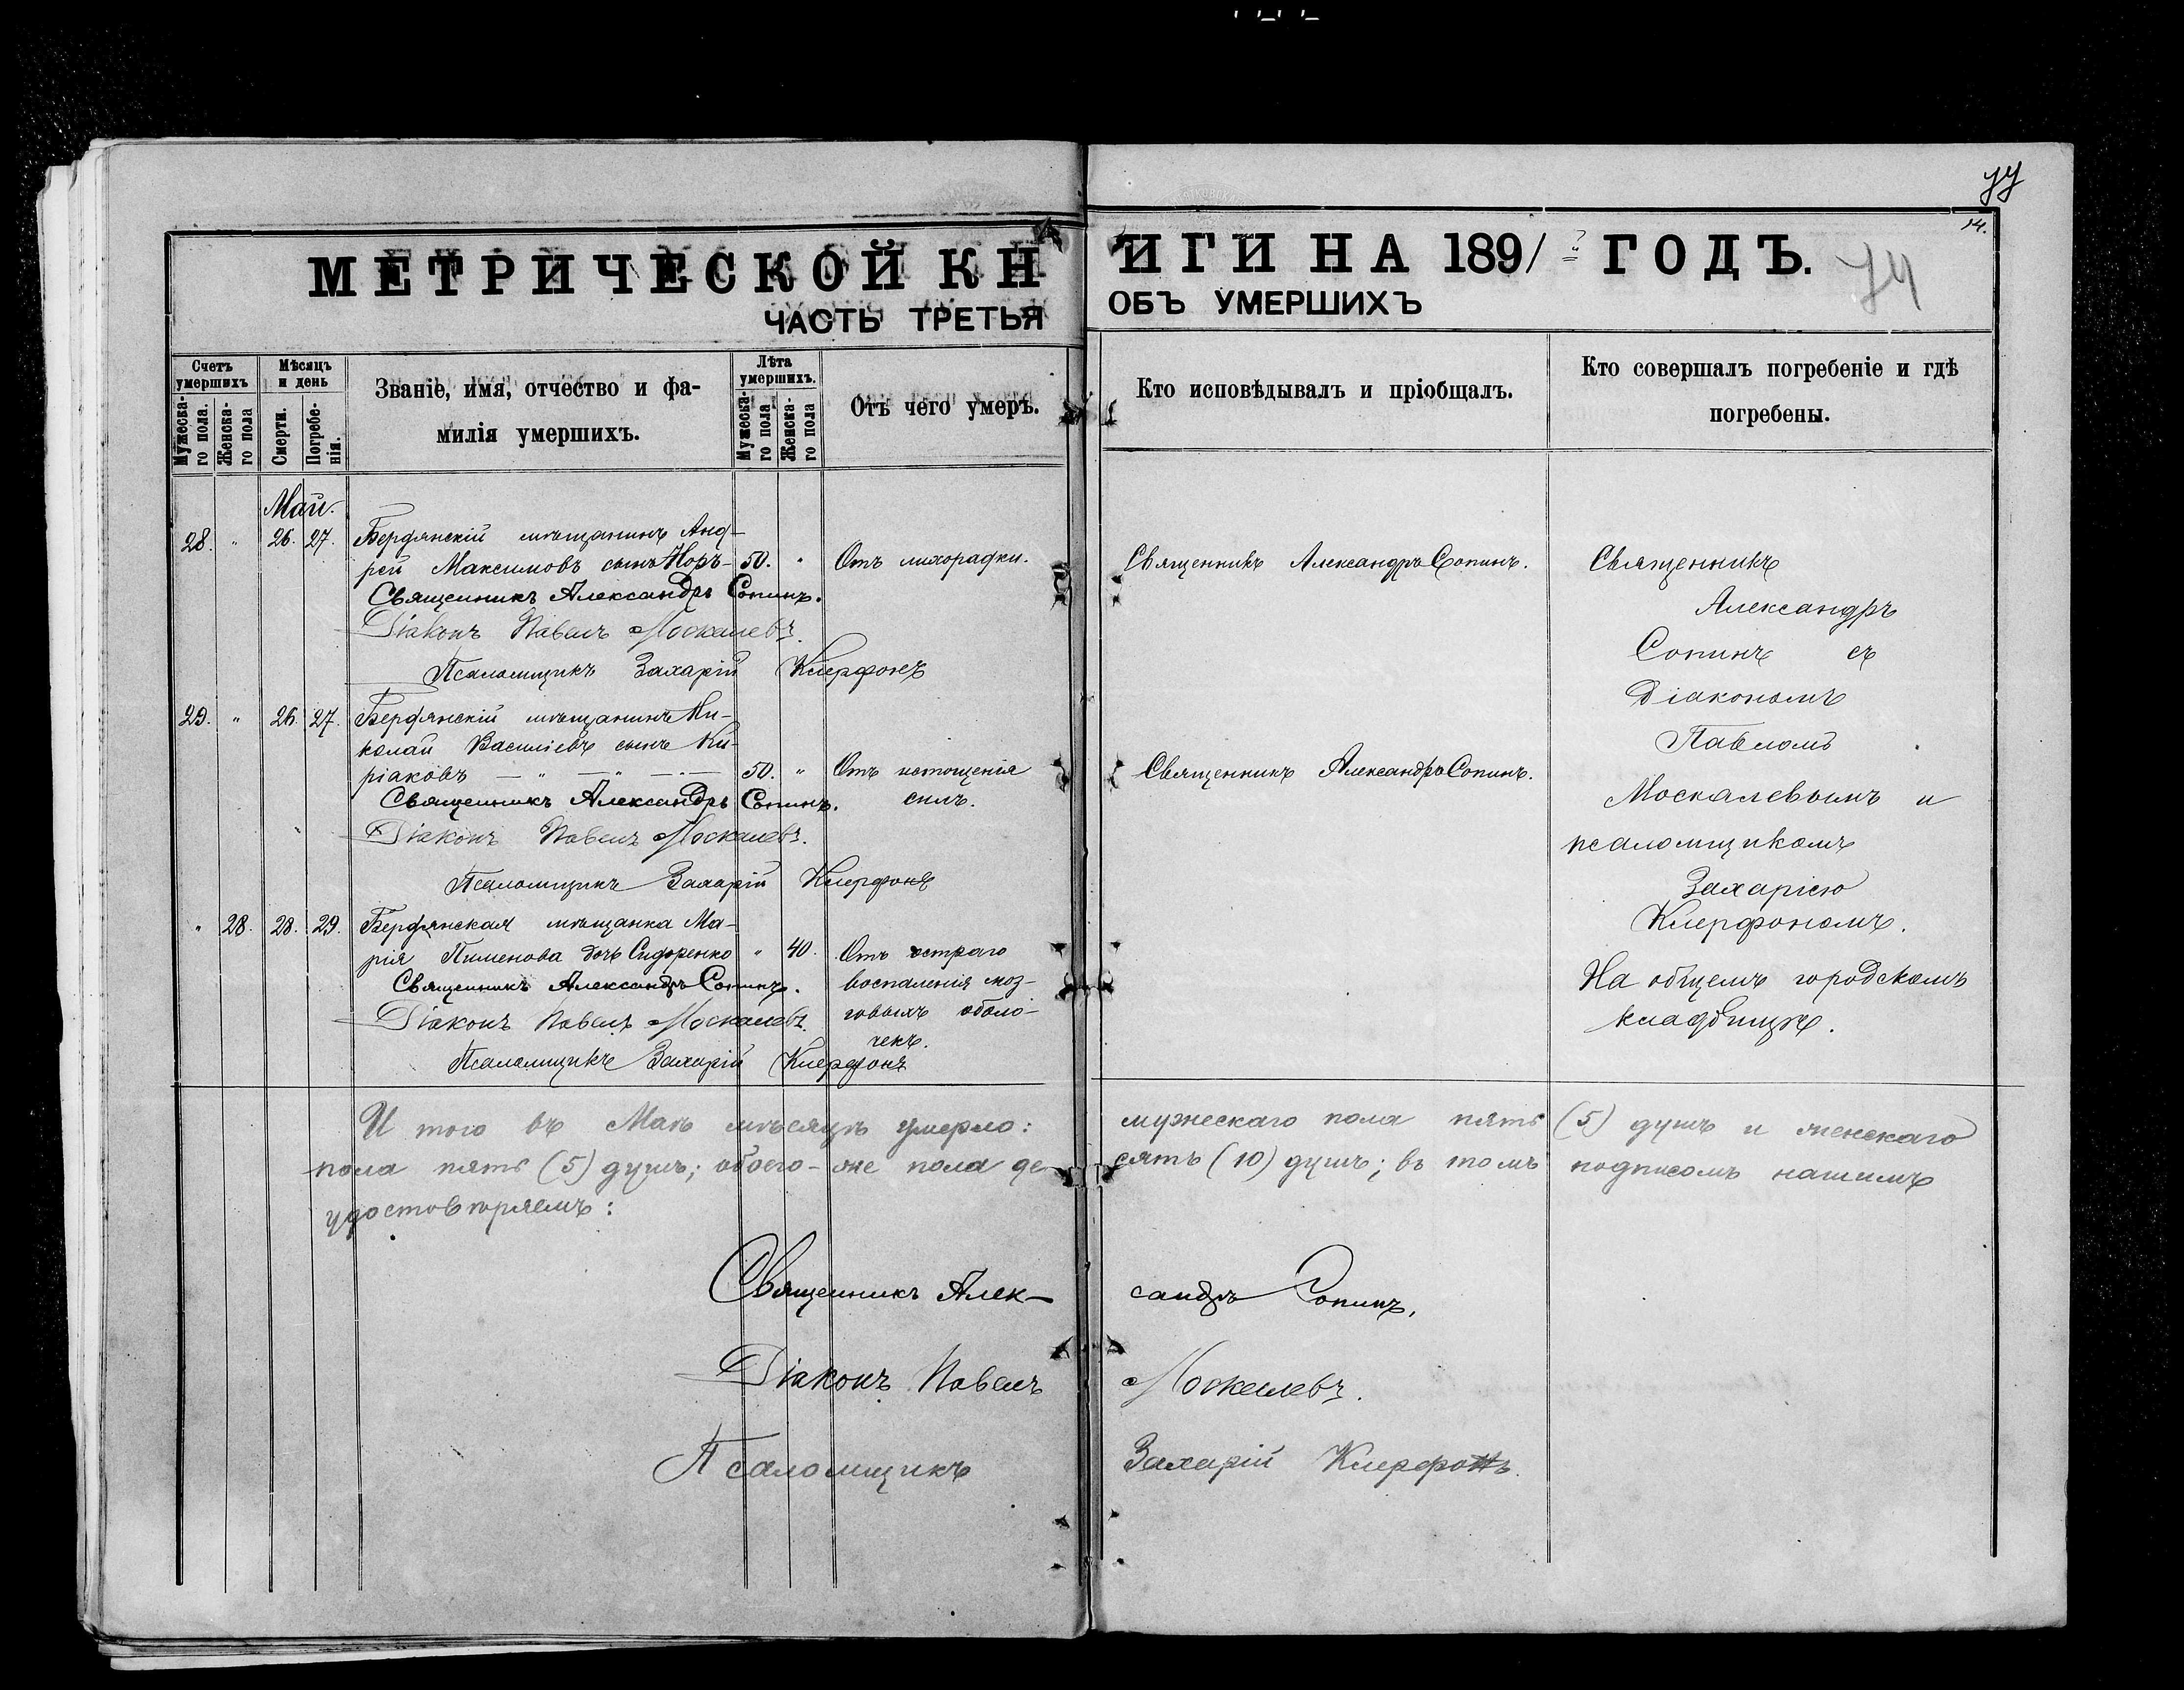 14.
МЕТРИЧЕСКОЙ КНИГИ НА 1891 ГОДЪ.
ЧАСТЬ ТРЕТЬЯ ОБЪ УМЕРШИХЪ
Счетъ умершихъ
Мужеска-го пола.
Женска-го пола
Мѣсяцъ и день
Смерти.
Погребе-нія.
Званіе, имя, отчество и фа-
милія умершихъ.
Лѣта умершихъ.
Мужеска-го пола
Женска-го пола
Отъ чего умеръ.
Кто исповѣдывалъ и пріобщалъ.
Кто совершалъ погребеніе и гдѣ
погребены.
Май.
28. " 26. 27. Бердянскій мѣщанинъ Анд-
рей Максимовъ сынъ 50. " Отъ лихорадки. Священникъ Александръ Сопинъ.
Священникъ Александръ Сопинъ.
Діаконъ Павелъ Москалевъ.
Псаломщикъ Захарій Клерфонъ
29. " 26. 27. Бердянскій мѣщанинъ Ни-
колай Василіевъ сынъ Ки-
ріаковъ — " — " — " — 50. " Отъ истощенія Священникъ Александръ Сопинъ.
силъ.
Священникъ Александръ Сопинъ.
Діаконъ Павелъ Москалевъ.
Псаломщикъ Захарій Клерфонъ
" 28. 28. 29. Бердянская мѣщанка Ма-
рія Пименова дочь Сидоренко " 40. Отъ остраго
воспаленія моз-
говыхъ оболо-
чекъ.
Священникъ Александръ Сопинъ.
Діаконъ Павелъ Москалевъ.
Псаломщикъ Захарій Клерфонъ
Священникъ
Александръ
Сопинъ съ
діакономъ
Павломъ
Москалевымъ и
псаломщикомъ
Захаріею
Клерфономъ.
На общемъ городскомъ
кладбищѣ.
И того въ Маѣ мѣсяцѣ умерло: мужескаго пола пять (5) душъ и женскаго
пола пять (5) душъ; обоего-же пола десять (10) душъ; въ томъ подписомъ нашимъ
удостовѣряемъ:
Священникъ Александръ Сопинъ.
Діаконъ Павелъ Москалевъ.
Псаломщикъ Захарій Клерфонъ.